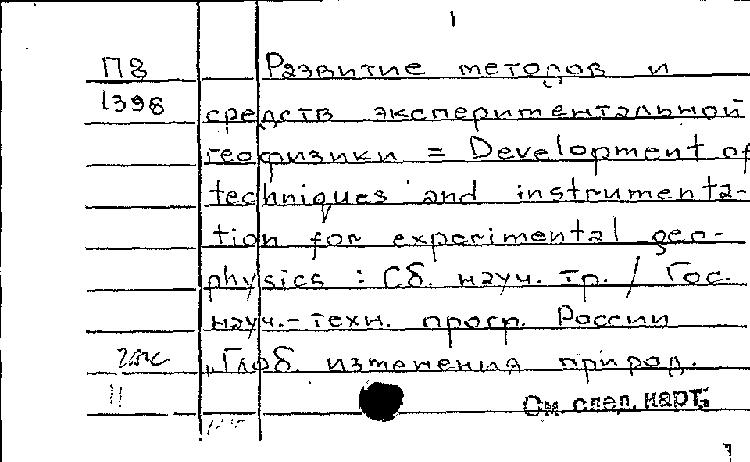 1
П8
1398
Развитие методов и
средств экспериментальной
геофизики = Development of
techniques and instrumenta-
tion for experimental geo-
physics : Сб. науч. тр. / Гос.
науч.-техн. прогр. России
„Глоб. изменения природ.
См. след. карт.